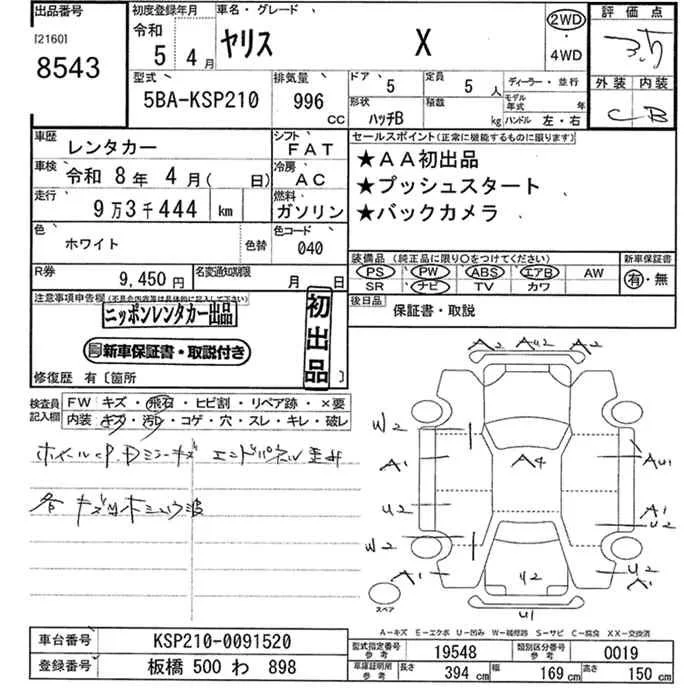 出品番号 初度登録年月 車名・グレード 評価点
[2160] 令和 ヤリス X 2WD
8543 5年 4月 4WD 3.5
型式 排気量 ドア 5 定員 5人 ディーラー・並行 外装 内装
5BA-KSP210 996cc 形状 ハッチB 積載 kg モデル年式 年 ハンドル 左・右 C B
車歴 レンタカー シフト FAT セールスポイント(正常に機能するものに限ります)
車検 令和 8年 4月( 日) 冷房 AC ★AA初出品
走行 9万3千444 km 燃料 ガソリン ★プッシュスタート
★バックカメラ
色 ホワイト 色替 色コード 040
装備品(純正品に限り○をつけてください) 新車保証書
R券 9,450円 名変通知期限 月 日 PS PW ABS エアB AW 有・無
SR ナビ TV カワ
注意事項申告欄(不具合内容等は具体的に記入して下さい) 後日品 保証書・取説
ニッポンレンタカー出品 初出品
新車保証書・取説付き
修復歴 有〔箇所 〕
A2 AU2 A2
検査員記入欄 FW キズ・飛石・ヒビ割・リペア跡・×要
内装 キズ・汚れ・コゲ・穴・スレ・キレ・破レ
W2
ホイールCP.Dミラーキズ エンドパネル歪み A1 A4 AU1
各キズ凹 U2 A1
U2
W2
A1 U2 U2
A1
スペア U1
A-キズ E-エクボ U-凹み W-補修跡 S-サビ C-腐食 XX-交換済
車台番号 KSP210-0091520 型式指定番号 参考 19548 類別区分番号 参考 0019
登録番号 板橋 500 わ 898 車庫証明所 参考 長さ 394 cm 幅 169 cm 高さ 150 cm